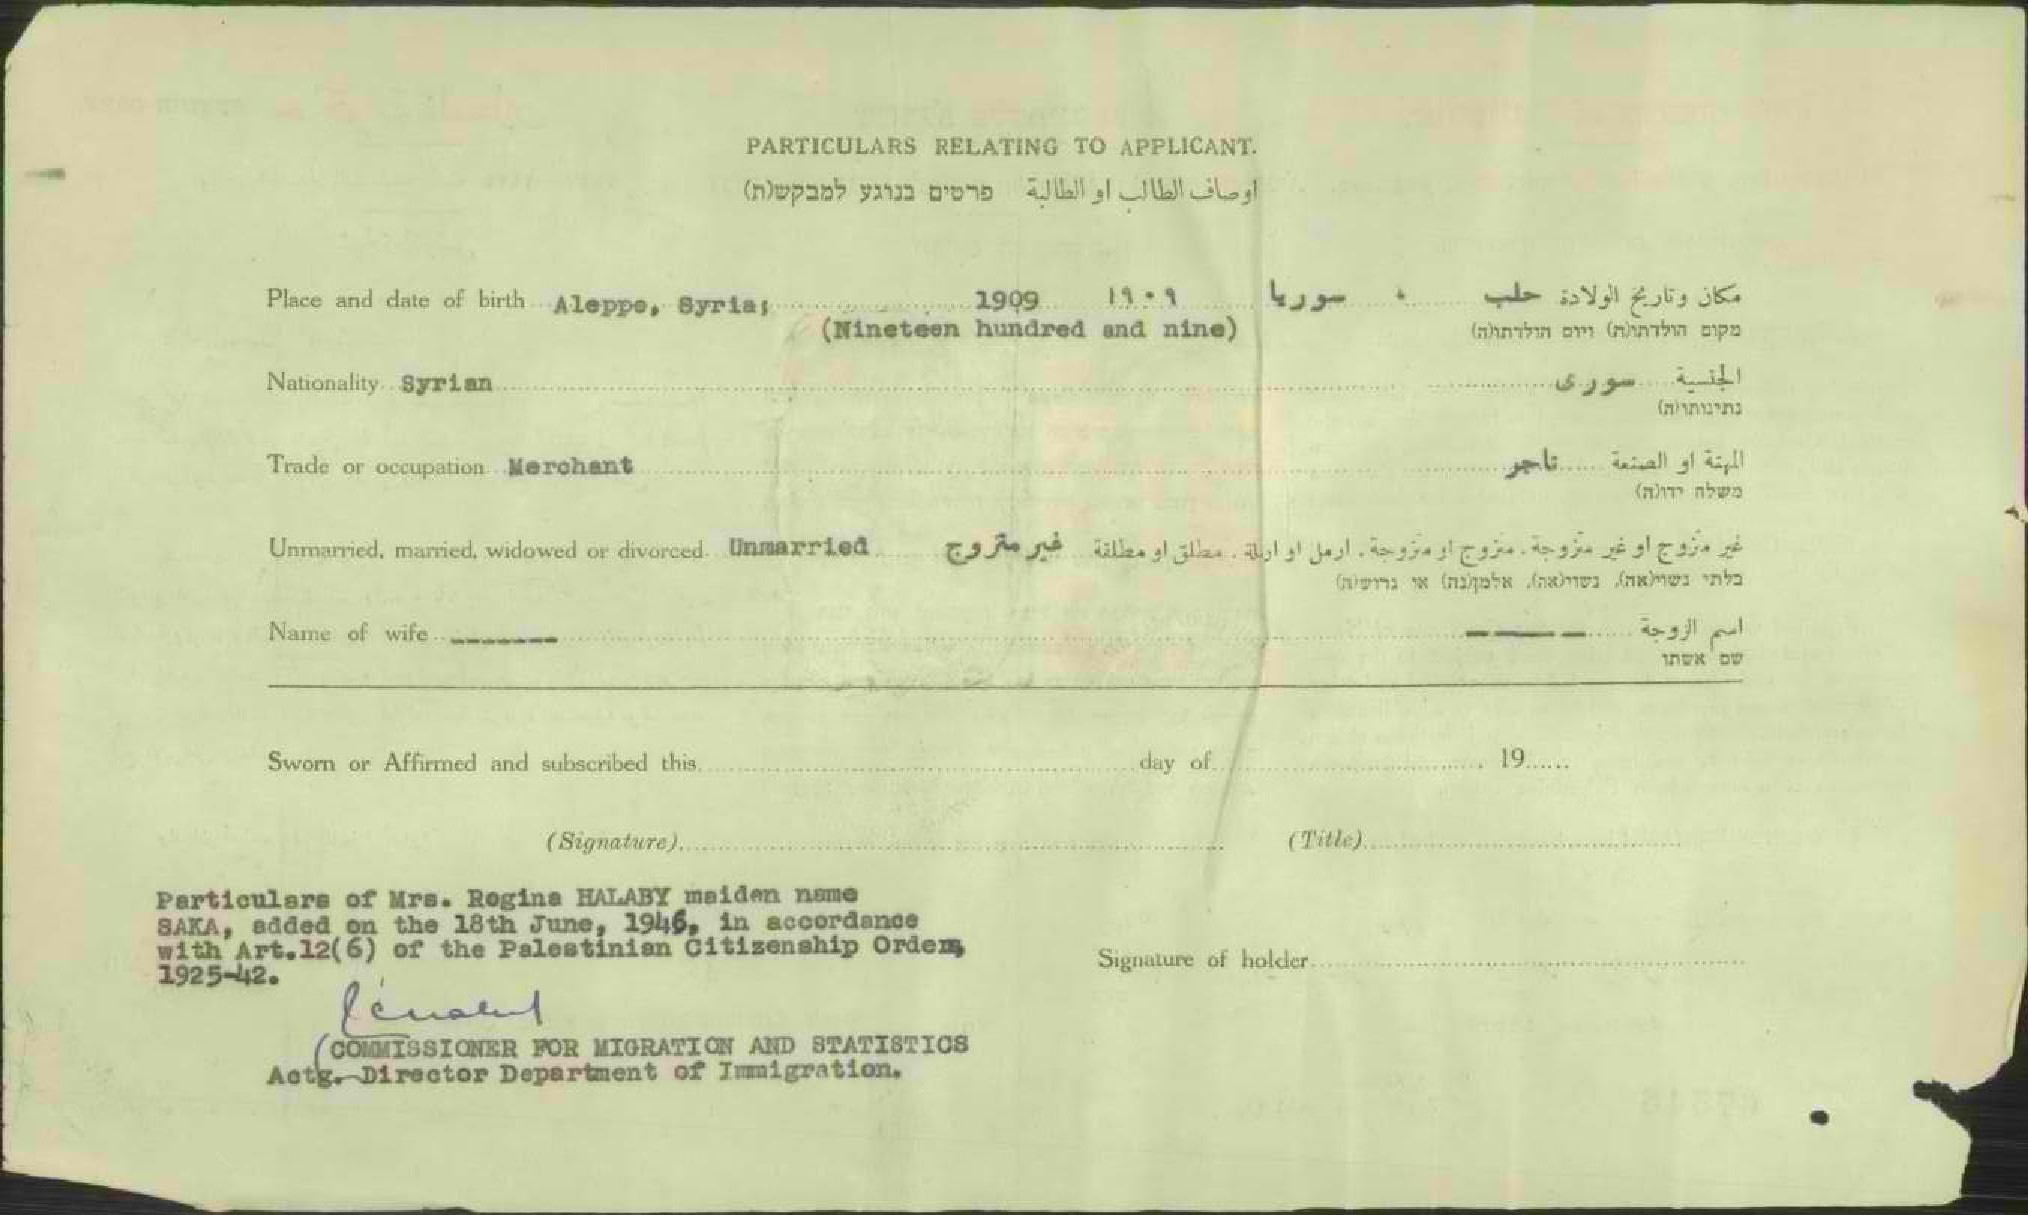 PARTICULARS RELATING TO APPLICANT.
اوصاف الطالب او الطالبة פרטים בנוגע למבקש(ת)
Place and date of birth Aleppo, Syria; 1909 ١٩٠٩ سوريا ، حلب مكان وتاريخ الولادة
(Nineteen hundred and nine) מקום הולדתו(ת) ויום הולדתו(ה)
Nationality Syrian سورى الجنسية
נתינותו(ה)
Trade or occupation Merchant تاجر المهنة او الصنعة
משלח ידו(ה)
Unmarried, married, widowed or divorced Unmarried غير متزوج غير متزوج او غير متزوجة. متزوج او متزوجة. ارمل او ارملة. مطلق او مطلقة
בלתי נשוי(אה), נשוי(אה), אלמן(נה) או גרוש(ה)
Name of wife ------- ———— اسم الزوجة
שם אשתו
Sworn or Affirmed and subscribed this day of 19
(Signature) (Title)
Particulars of Mrs. Regina HALABY maiden name
SAKA, added on the 18th June, 1946, in accordance
with Art.12(6) of the Palestinian Citizenship Order,
1925-42.
Signature of holder
(COMMISSIONER FOR MIGRATION AND STATISTICS
Actg. Director Department of Immigration.